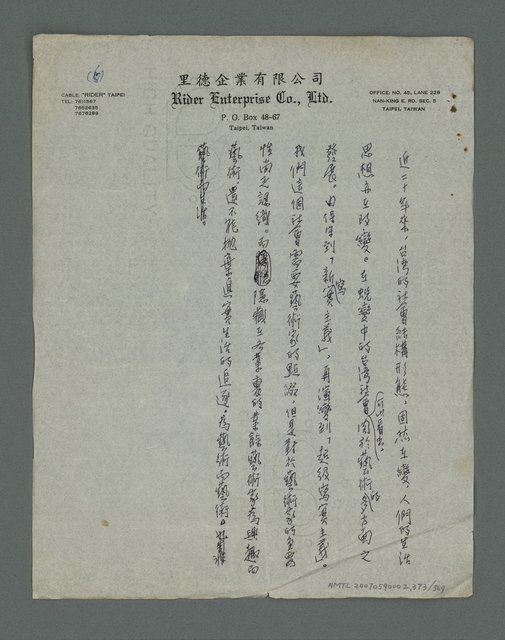 (6)
里德企業有限公司
Rider Enterprise Co., Ltd.
P. O. Box 48-67
Taipei, Taiwan
CABLE: "RIDER" TAIPEI
TEL: 7611567
7652635
7676289
OFFICE: NO. 45, LANE 228
NAN-KING E. RD. SEC. 5
TAIPEI, TAIWAN
近二十年來,台灣的社會結構形態,固然在變,人們的生活
思想亦在改變。在蛻變中的台灣社會關於藝術的多方面之
發展,可以看出。由保守到「新寫實主義」,再演變到「超級寫實主義」。
我們這個社會需要藝術家的點滴,但是對於藝術家的
性尚乏認識。而隱藏在各業裏的業餘藝術家為興趣而
藝術,還不能拋棄真實生活的追逐。為藝術而藝術。
藝術而生活。
NMTL 20070590002,373/529